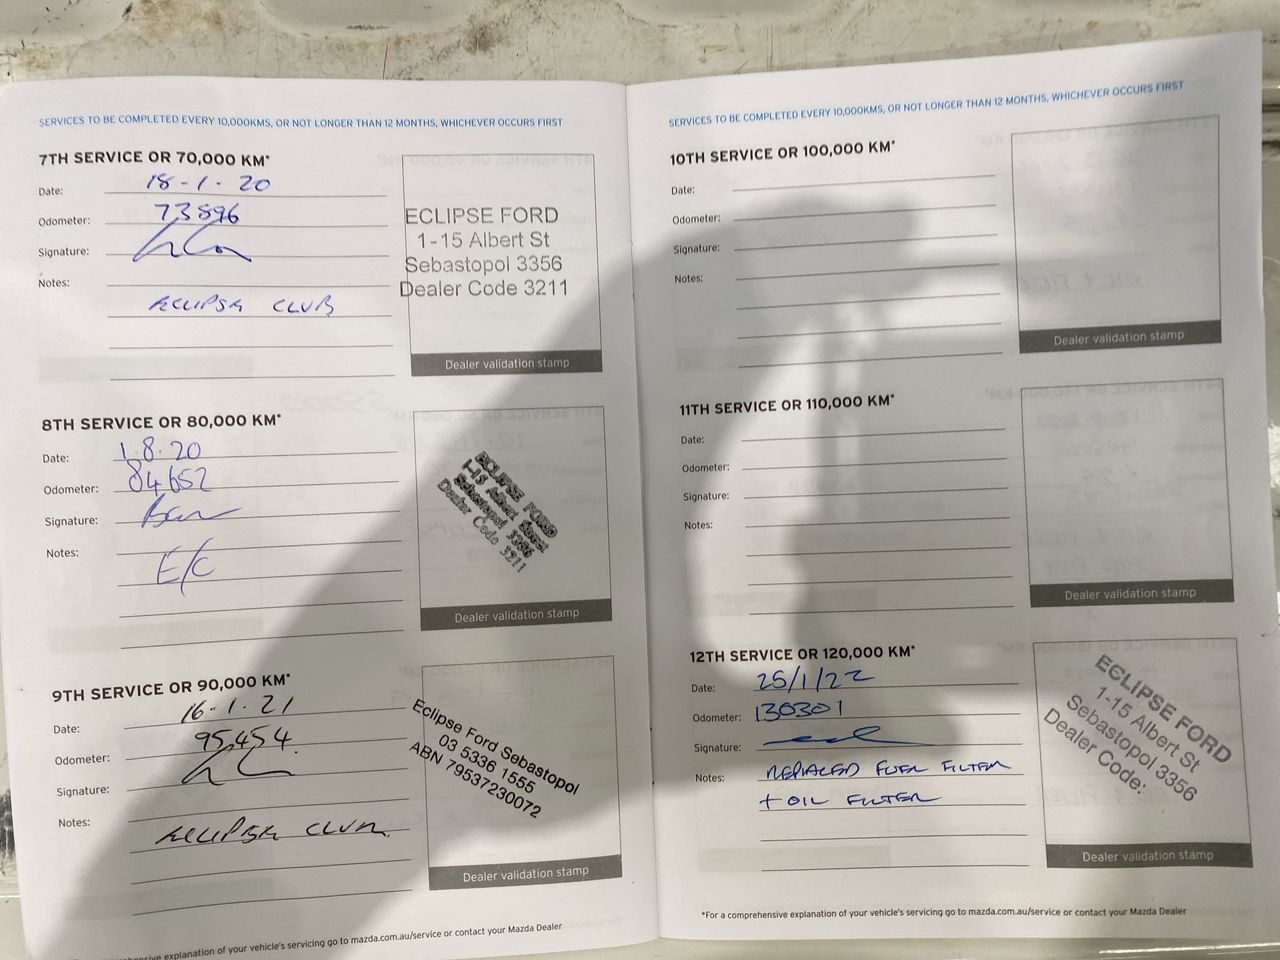 SERVICES TO BE COMPLETED EVERY 10,000KMS, OR NOT LONGER THAN 12 MONTHS, WHICHEVER OCCURS FIRST
7TH SERVICE OR 70,000 KM*
Date: 18-1-20
Odometer: 73896
Signature:
Notes:
ECLIPSE CLUB
ECLIPSE FORD
1-15 Albert St
Sebastopol 3356
Dealer Code 3211
Dealer validation stamp
8TH SERVICE OR 80,000 KM*
Date: 1.8.20
Odometer: 84652
Signature:
Notes:
E/C
ECLIPSE FORD
1-15 Albert Street
Sebastopol 3356
Dealer Code 3211
Dealer validation stamp
9TH SERVICE OR 90,000 KM*
Date: 16-1.21
Odometer: 95,454
Signature:
Notes:
ECLIPSE CLUB
Eclipse Ford Sebastopol
03 5336 1555
ABN 79537230072
Dealer validation stamp
explanation of your vehicle's servicing go to mazda.com.au/service or contact your Mazda Dealer
SERVICES TO BE COMPLETED EVERY 10,000KMS, OR NOT LONGER THAN 12 MONTHS, WHICHEVER OCCURS FIRST
10TH SERVICE OR 100,000 KM*
Date:
Odometer:
Signature:
Notes:
Dealer validation stamp
11TH SERVICE OR 110,000 KM*
Date:
Odometer:
Signature:
Notes:
Dealer validation stamp
12TH SERVICE OR 120,000 KM*
Date: 25/1/22
Odometer: 130301
Signature:
Notes: REPLACED FUEL FILTER
+ OIL FILTER
ECLIPSE FORD
1-15 Albert St
Sebastopol 3356
Dealer Code:
Dealer validation stamp
*For a comprehensive explanation of your vehicle's servicing go to mazda.com.au/service or contact your Mazda Dealer